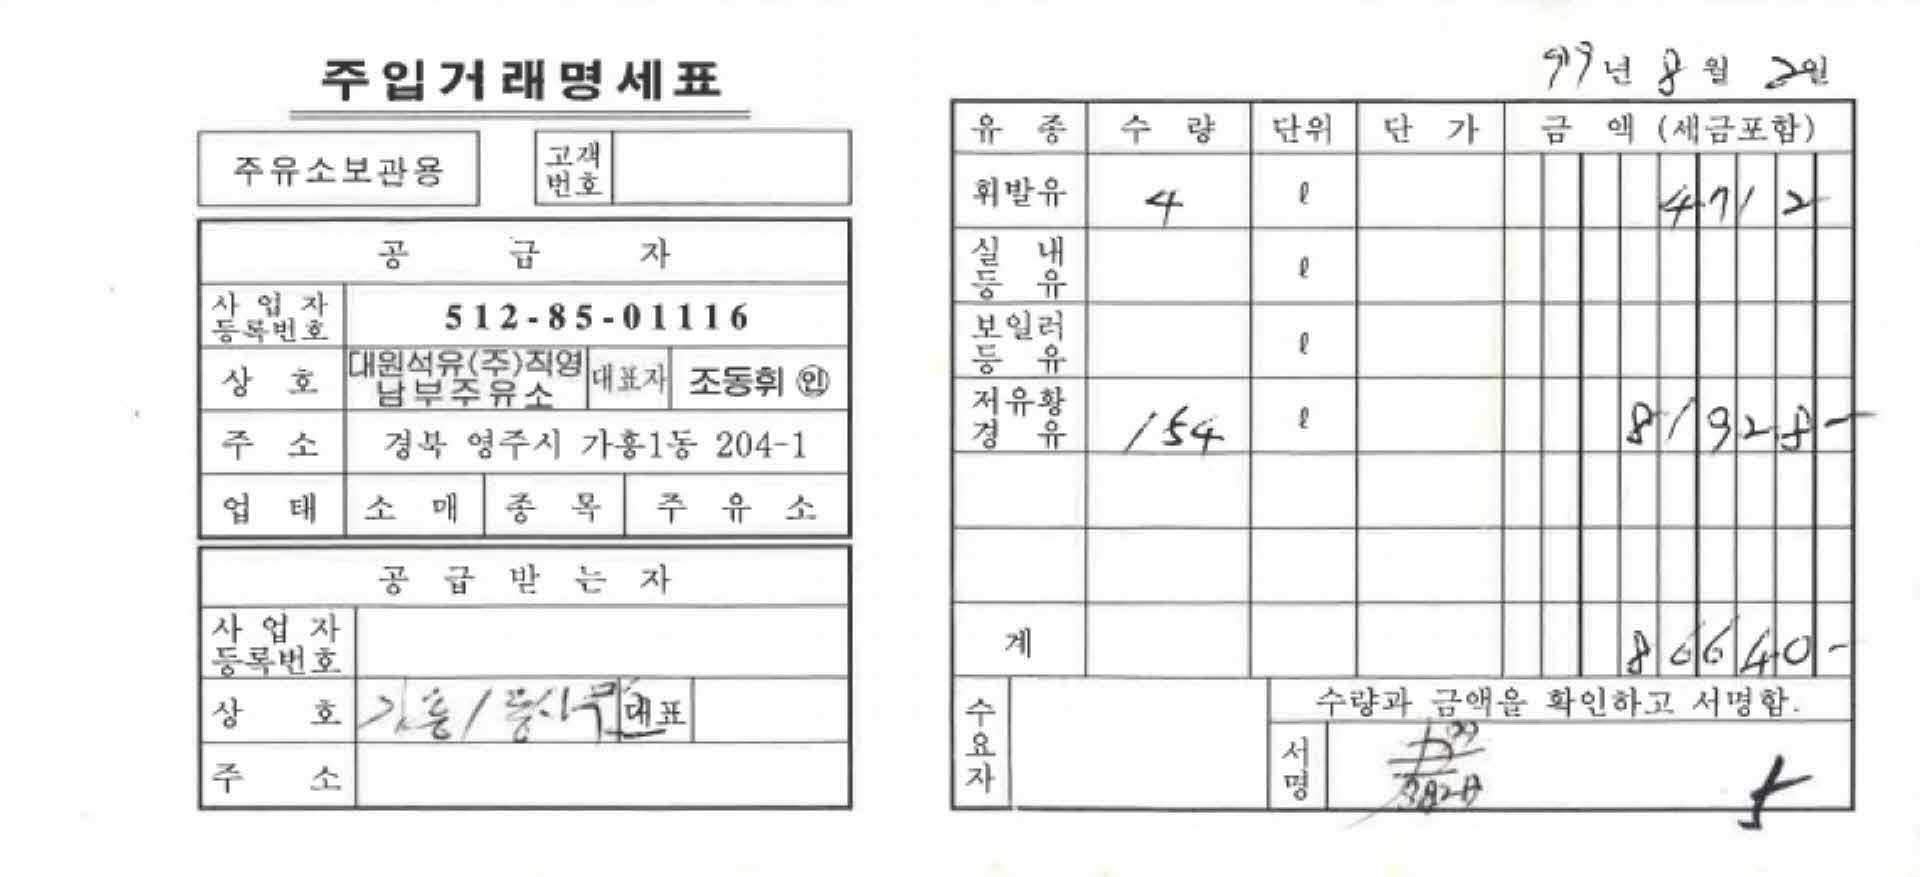 주입거래명세표
주유소보관용
고객
번호
공 급 자
사 업 자
등록번호
512-85-01116
상 호
대원석유(주)직영
남부주유소
대표자
조동휘 ㊞
주 소
경북 영주시 가흥1동 204-1
업 태
소 매
종 목
주 유 소
공 급 받 는 자
사 업 자
등록번호
상 호
가흥1동사무
대표
주 소
99년 8월 2일
유 종 수 량 단위 단 가 금 액 (세금포함)
휘발유 4 ℓ 4712
실 내
등 유
ℓ
보일러
등 유
ℓ
저유황
경 유
154 ℓ 81928-
계 86640-
수
요
자
수량과 금액을 확인하고 서명함.
서
명